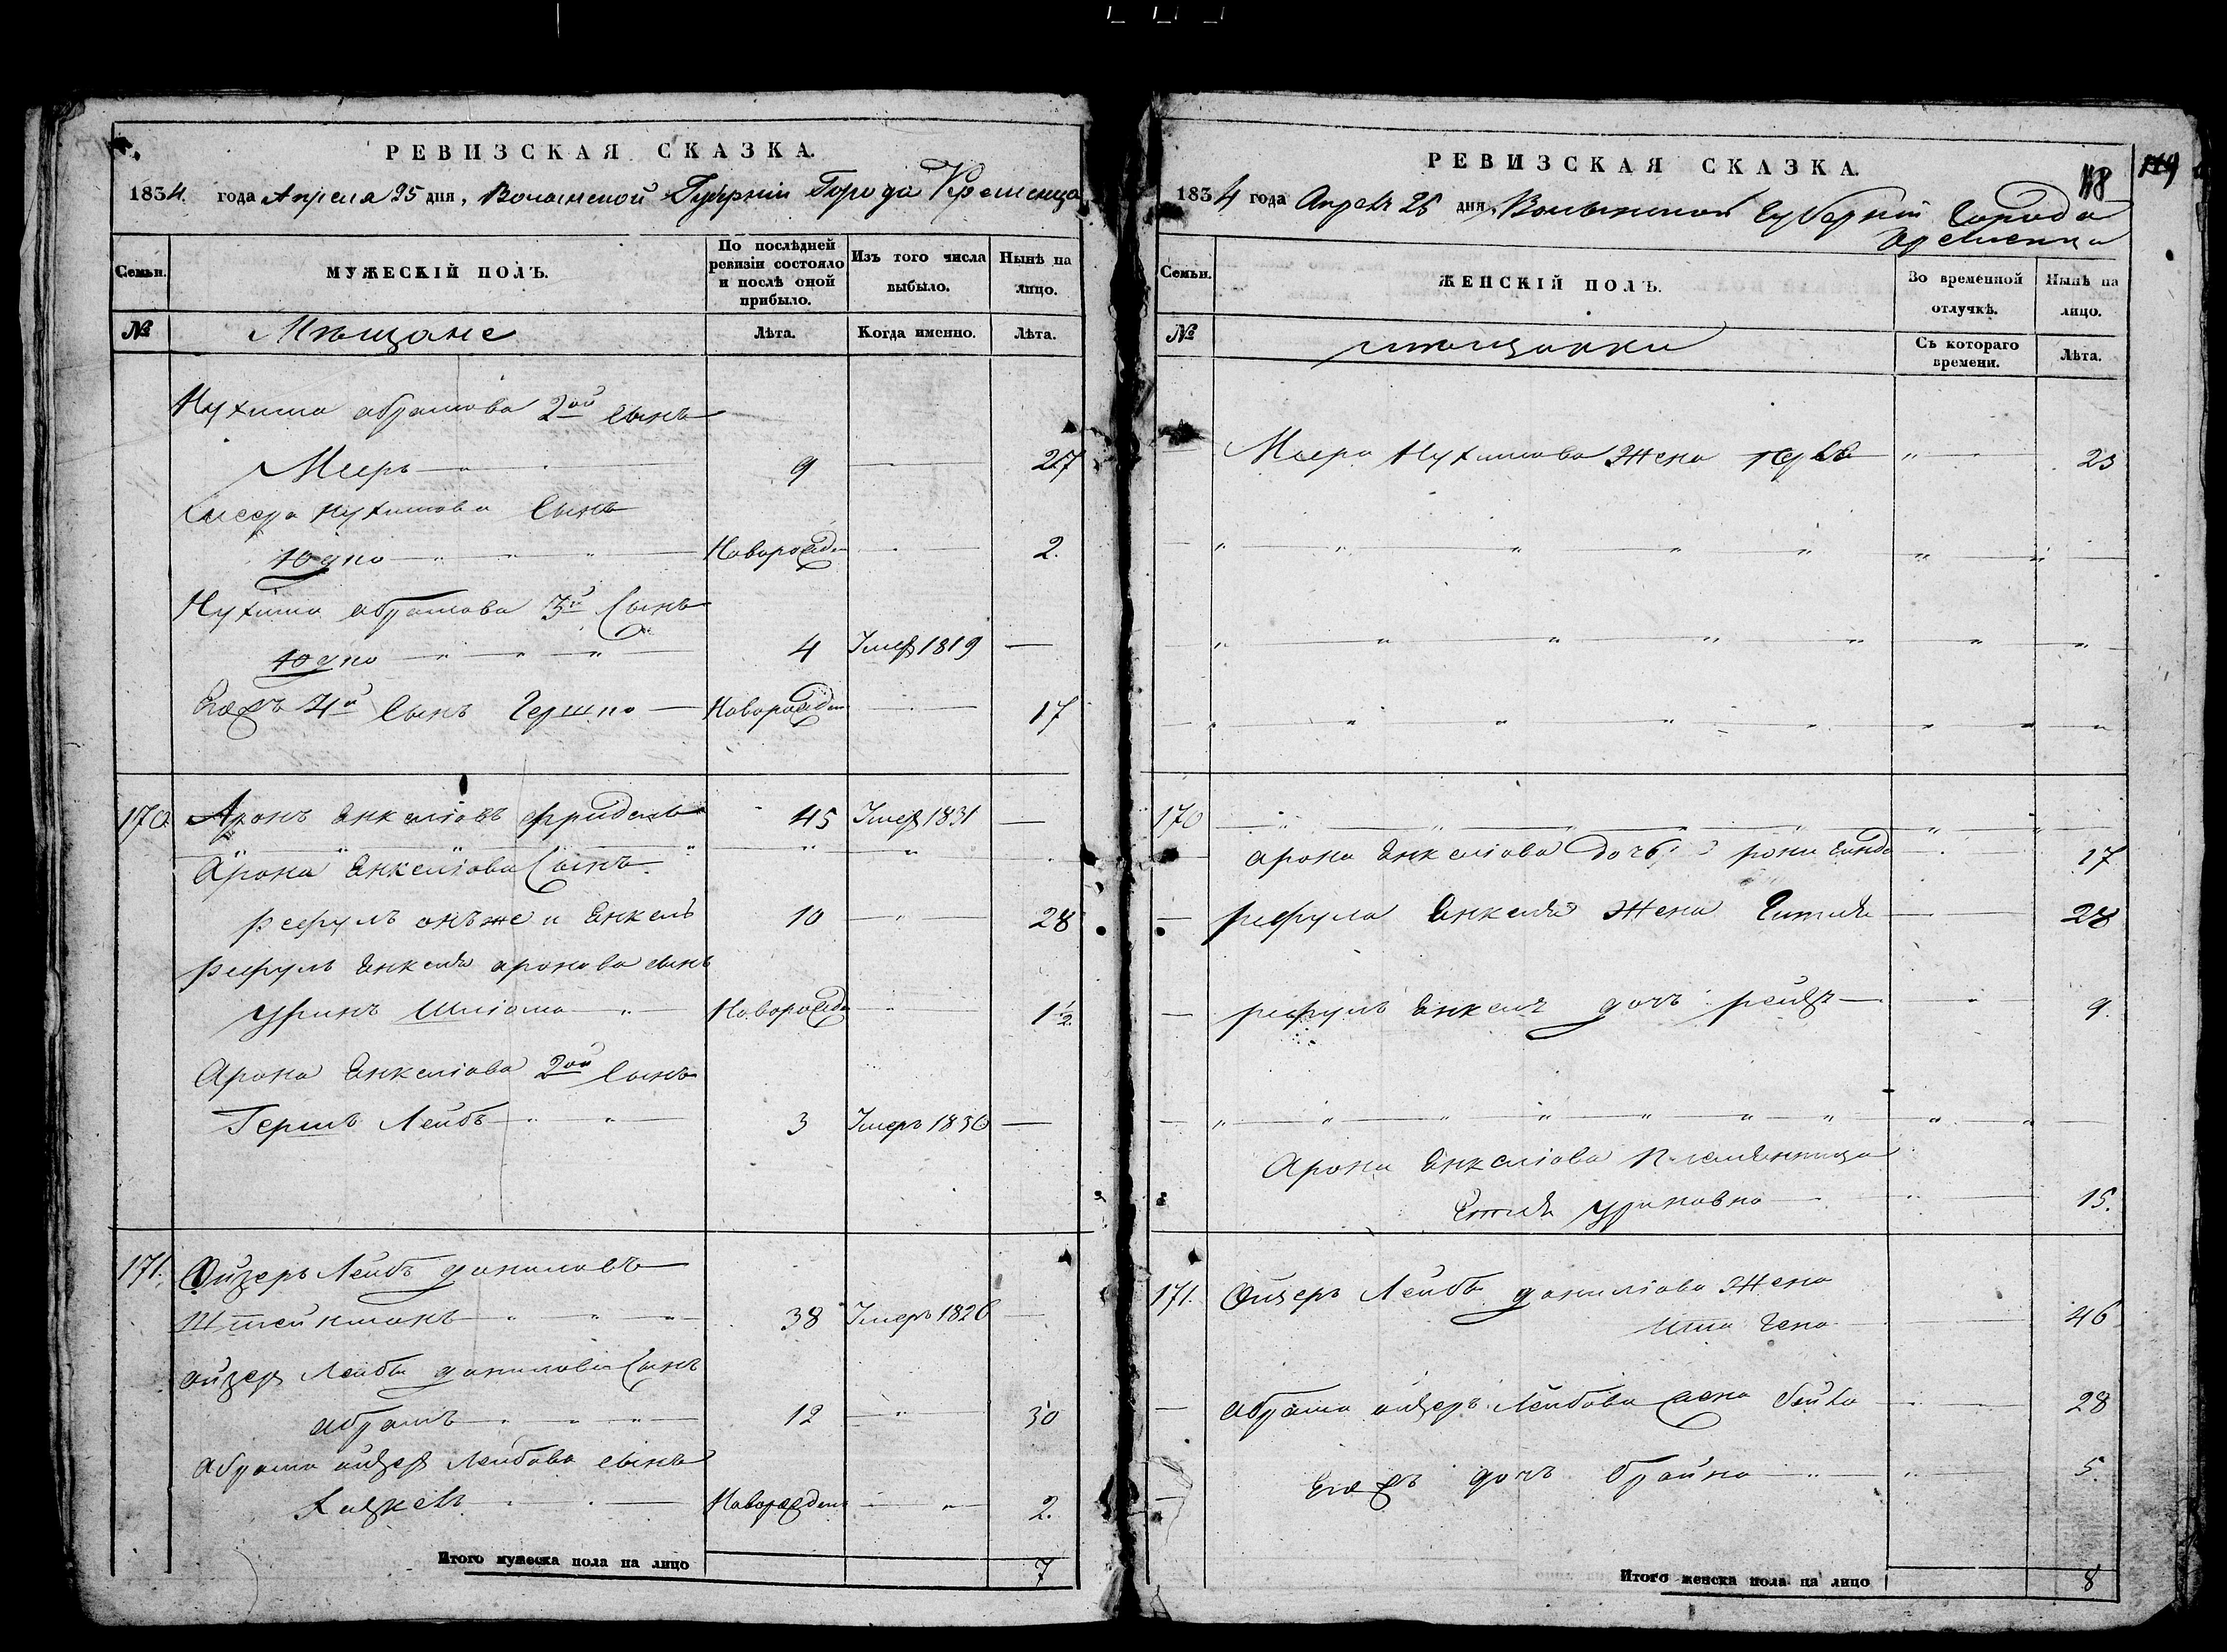 РЕВИЗСКАЯ СКАЗКА.
1834. года Апреля 25 дня, Волынской Губерніи Города Кременца
Семьи. МУЖЕСКІЙ ПОЛЪ. По послѣдней ревизіи состояло и послѣ оной прибыло. Изъ того числа выбыло. Нынѣ на лицо.
№ Мѣщане Лѣта. Когда именно. Лѣта.
Нухима абрамова 2ой сынъ
Мееръ 9 27
Меера Нухимова Сынъ
Юдко Новорожден 2.
Нухима абрамова 3й Сынъ
Юдко 4 Умер 1819
Егожъ 4й Сынъ Гершко Новорожден 17
170. Аронъ Енкеліовъ фридель 45 Умер 1831
Арона Енкеліова Сынъ
рефулъ онъже и Енкель 10 28
рефулъ Енкеля аронова сынъ
Уринъ Шліома Новорожде 1 1/2.
Арона Енкеліова 2ой сынъ
Гершъ Лейбъ 3 Умеръ 1830
171. Ойзеръ Лейбъ даниловъ
Штейнманъ 38 Умеръ 1826
ойзер Лейбы данилова Сынъ
абрамъ 12 30
абрама ойзер Лейбова сынъ
Хацкель Новорожден 2.
Итого мужеска пола на лицо 7
РЕВИЗСКАЯ СКАЗКА.
118 119
1834 года Апреля 25 дня, Волынской Губерніи Города
Кременца
Семьи. ЖЕНСКІЙ ПОЛЪ. Во временной отлучкѣ. Нынѣ на лицо.
№ мѣщанки Съ котораго времени. Лѣта.
Меера Нухимова Жена 23
170
арона Енкеліова дочь 17
рефула Енкеля Жена Гитля 28
рефулъ Енкеля дочь рейзя 9.
Арона Енкеліова племянница
Етля Уриновна 15.
171. Ойзеръ Лейбы даниліова Жена
Гена 46
абрама ойзеръ Лейбова жена 28
Егожъ дочь брайна 5.
Итого женска пола на лицо 8